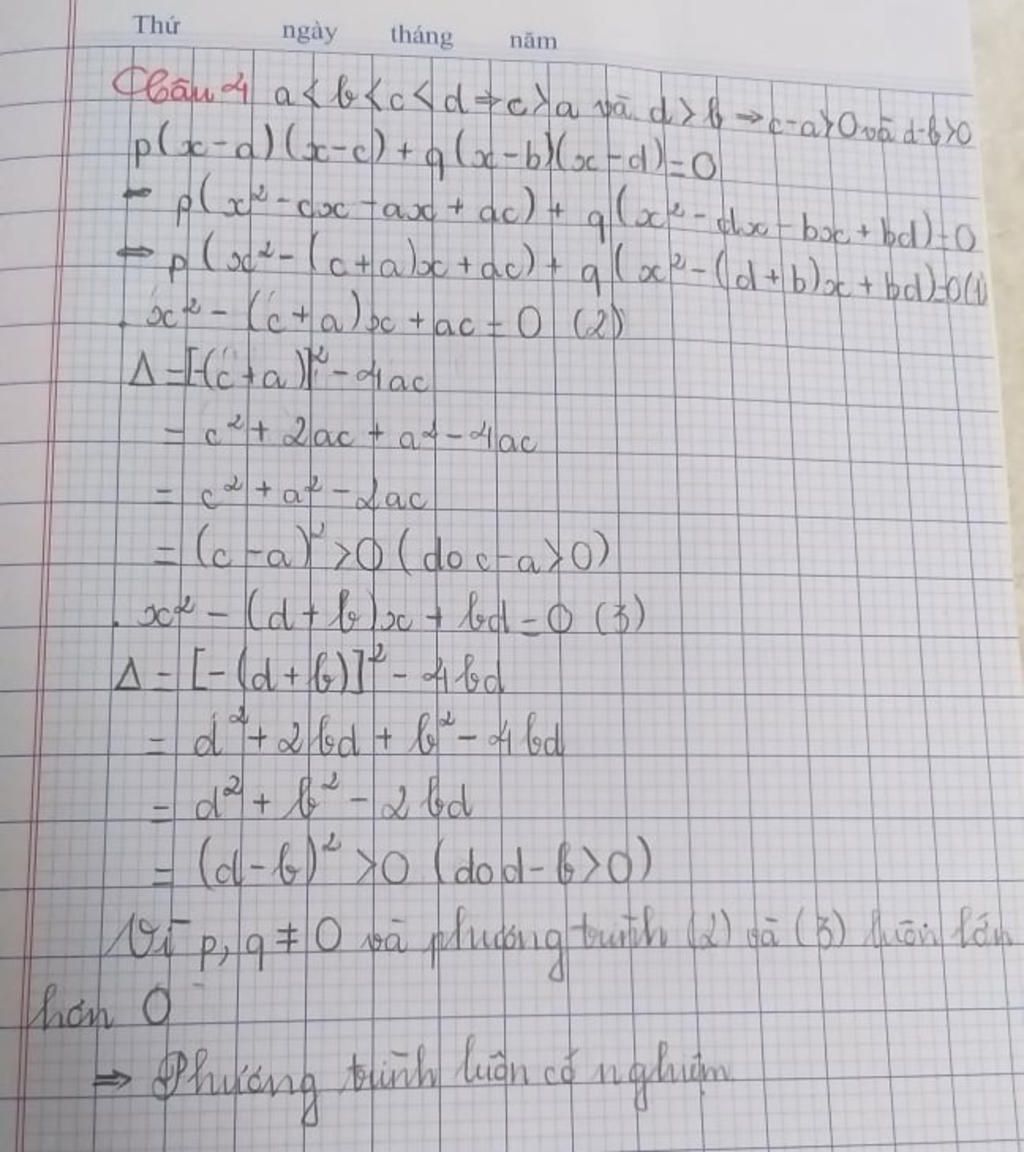 Thứ ngày tháng năm
Câu 4 a < b < c < d → c > a và d > b → c - a > 0 và d - b > 0
p(x-a)(x-c) + q(x-b)(x-d) = 0
⇔ p(x² - cx - ax + ac) + q(x² - dx - bx + bd) = 0
⇔ p(x² - (c+a)x + ac) + q(x² - (d+b)x + bd) = 0 (1)
. x² - (c+a)x + ac = 0 (2)
Δ = [-(c+a)]² - 4ac
= c² + 2ac + a² - 4ac
= c² + a² - 2ac
= (c-a)² > 0 (do c-a > 0)
. x² - (d+b)x + bd = 0 (3)
Δ = [-(d+b)]² - 4bd
= d² + 2bd + b² - 4bd
= d² + b² - 2bd
= (d-b)² > 0 (do d-b > 0)
Vì p, q ≠ 0 và phương trình (2) và (3) luôn lớn
hơn 0
⇒ Phương trình luôn có nghiệm